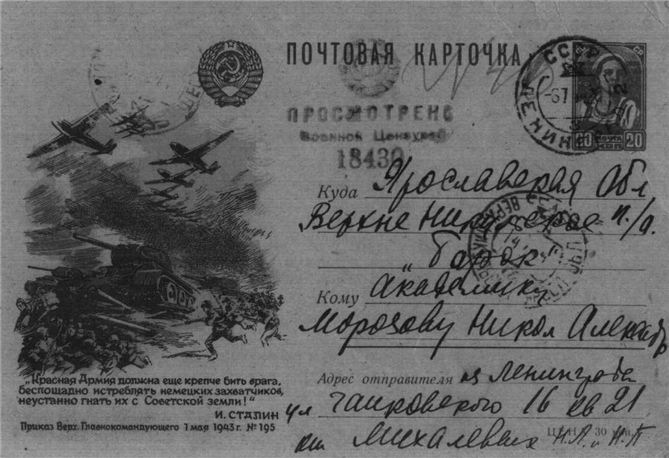 ПОЧТОВАЯ КАРТОЧКА
СССР
ПРОСМОТРЕНО
Военной Цензурой
18430
20 ПОЧТА КОП 20
Куда Ярославская Обл
п/о.
"Борок"
Кому Академику
Морозову Никол Александр
„Красная Армия должна еще крепче бить врага,
беспощадно истреблять немецких захватчиков,
неустанно гнать их с Советской земли!"
И. СТАЛИН
Приказ Верх. Главнокомандующего 1 мая 1943 г. № 195
Адрес отправителя из Ленинграда
ул Чайковского 16 кв 21
от Михалевых Н.А. и Н.П